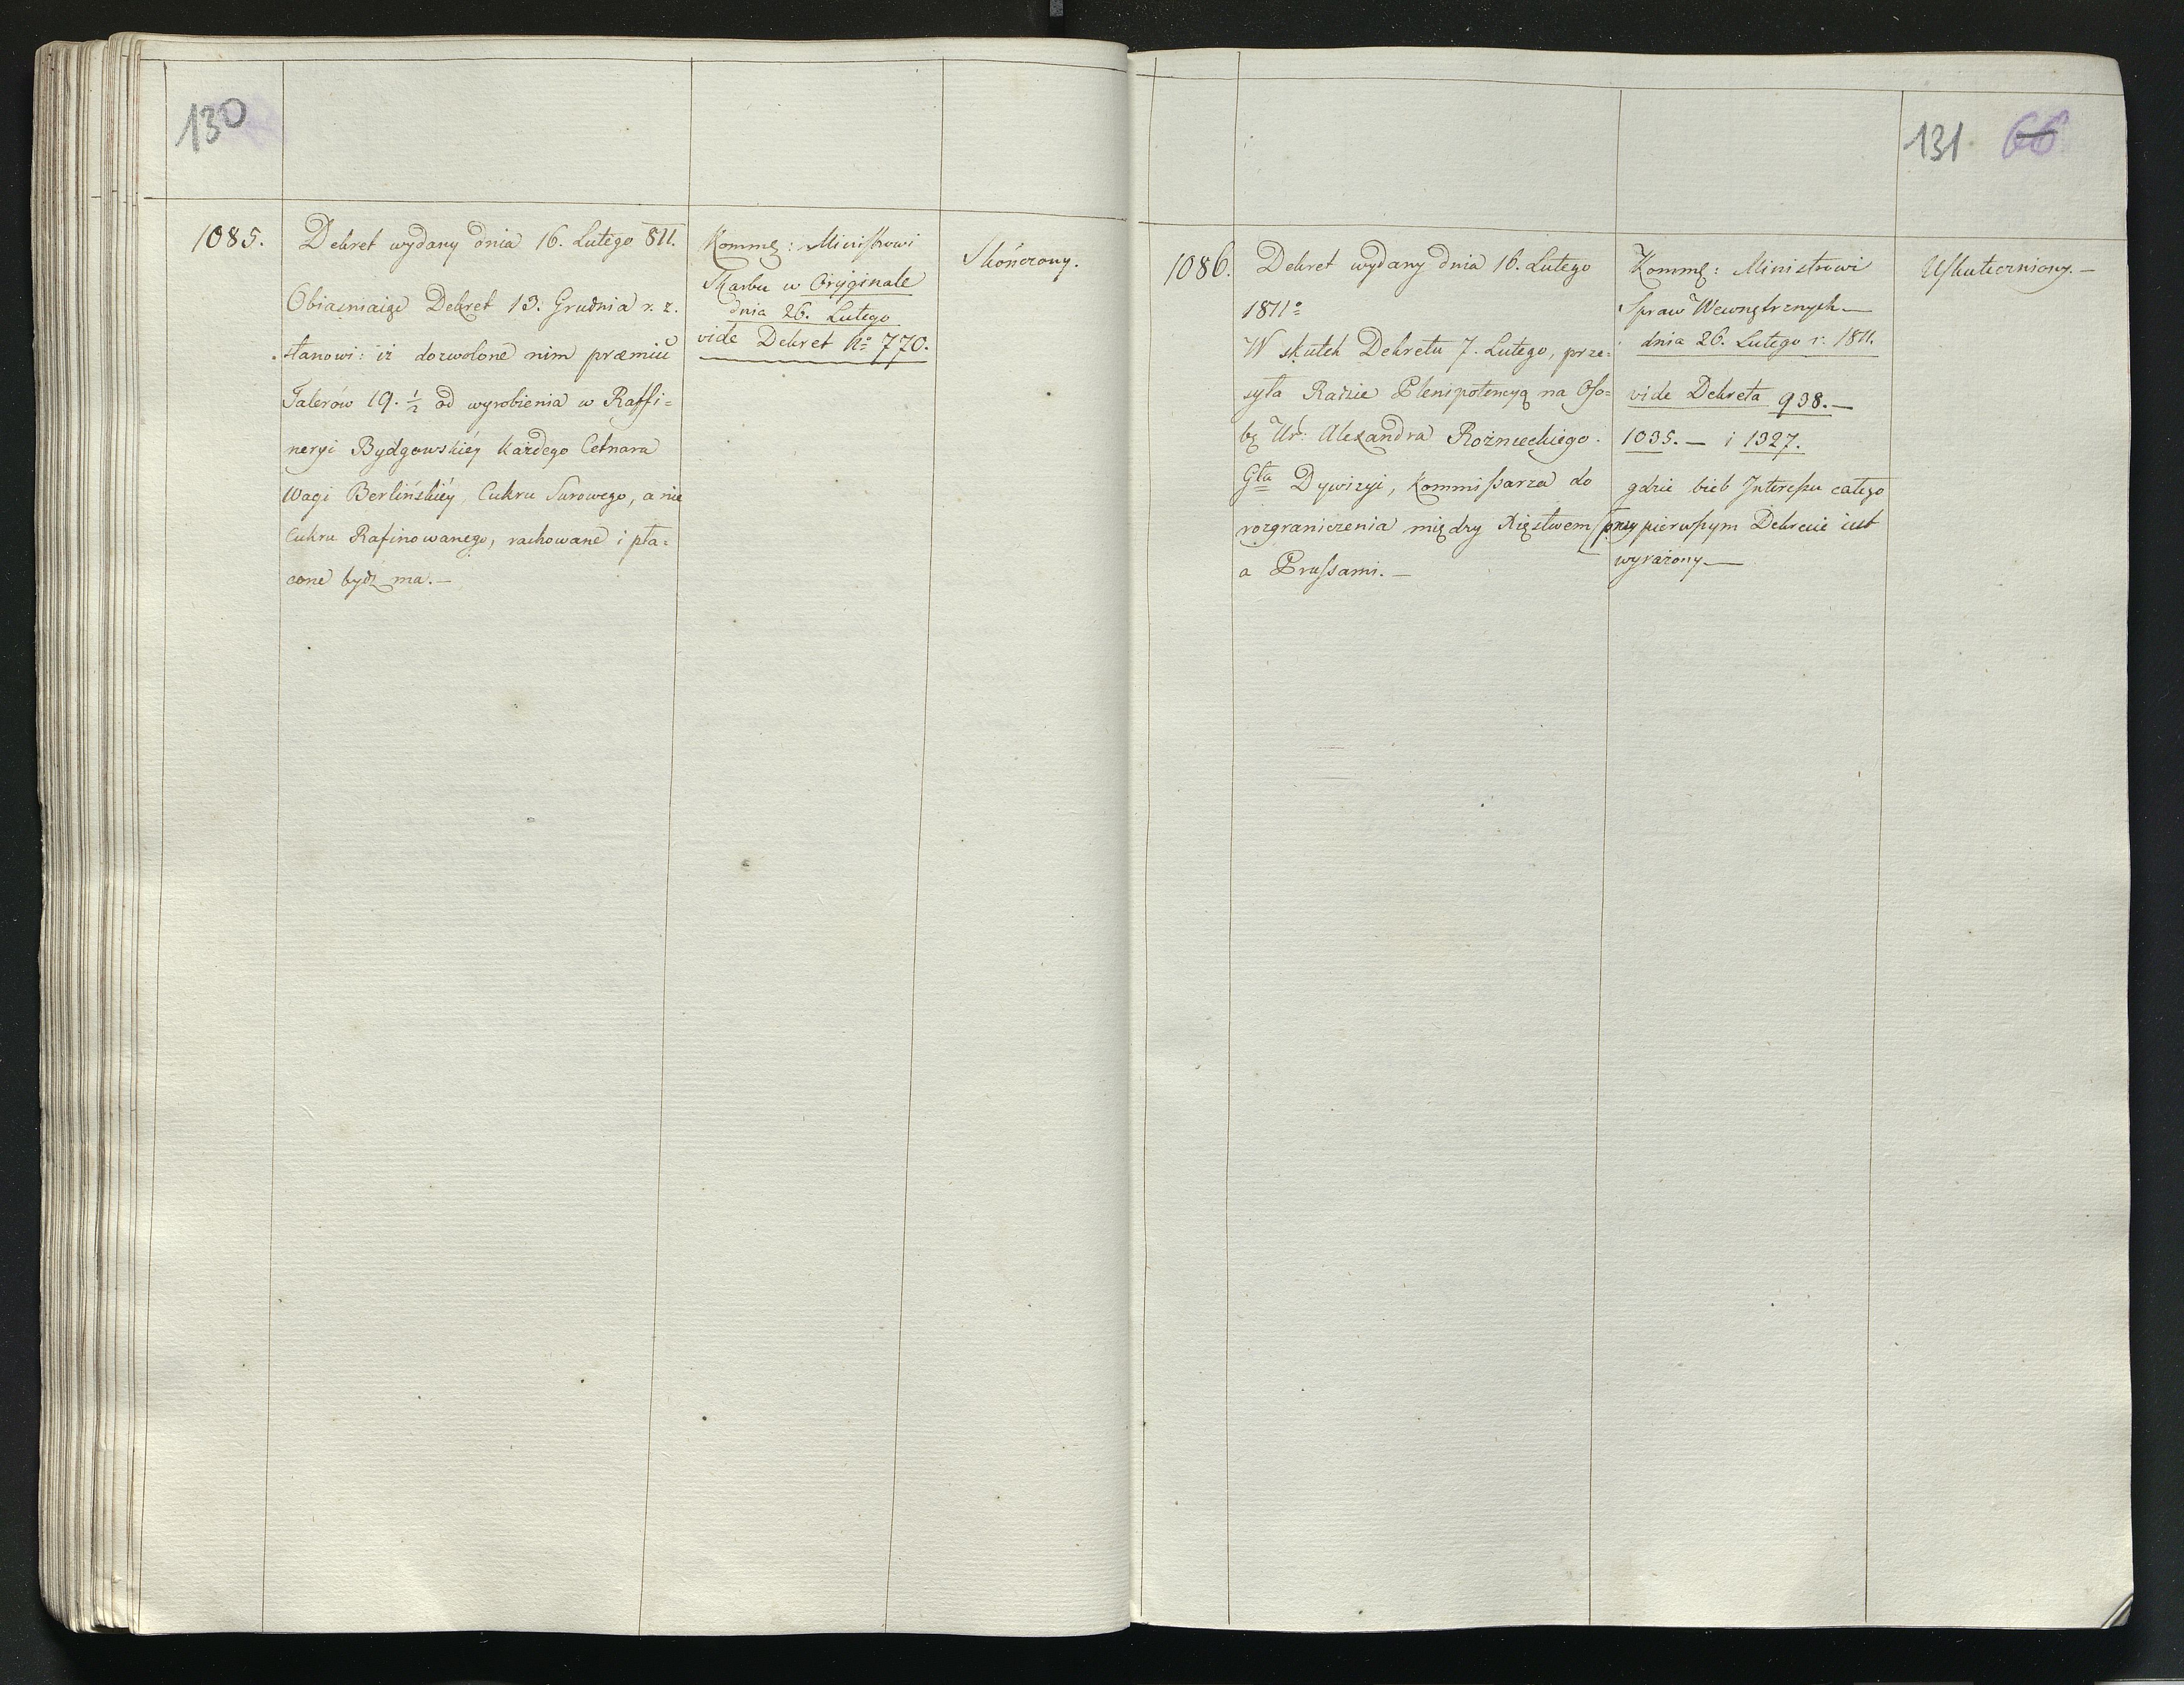 130
1085.
Dekret wydany dnia 16. Lutego 811.
Obiasniaiąc Dekret 13. Grudnia r. z.
stanowi: iż dozwolone nim præmiū
Talerów 19. ½ od wyrobienia w Raffi=
neryi Bydgowskiéy każdego Cetnara
Wagi Berlińskiéy Cukru Surowego, a nie
Cukru Rafinowanego, rachowane i pła=
cone bydź ma.—
Kommę: Ministrowi
Skarbu w Oryginale
dnia 26. Lutego
vide Dekret No 770.
Skończony.
131 66
1086.
Dekret wydany dnia 16. Lutego
1811o
W skutek Dekretu 7. Lutego, prze=
syła Radzie Plenipotencyą na Oso=
bę Ur: Alexandra Rożnieckiego
Gła Dywizyi, Kommissarza do
rozgraniczenia między Xięstwem
a Prussami.—
Kommę: Ministrowi
Spraw Wewnętrznych—
dnia 26. Lutego r. 1811.
vide Dekreta 938.—
1035.— i 1327.
gdzie bieb Interessu całego
przy pierwszym Dekrecie iest
wyrażony—
Uskuteczniony.—